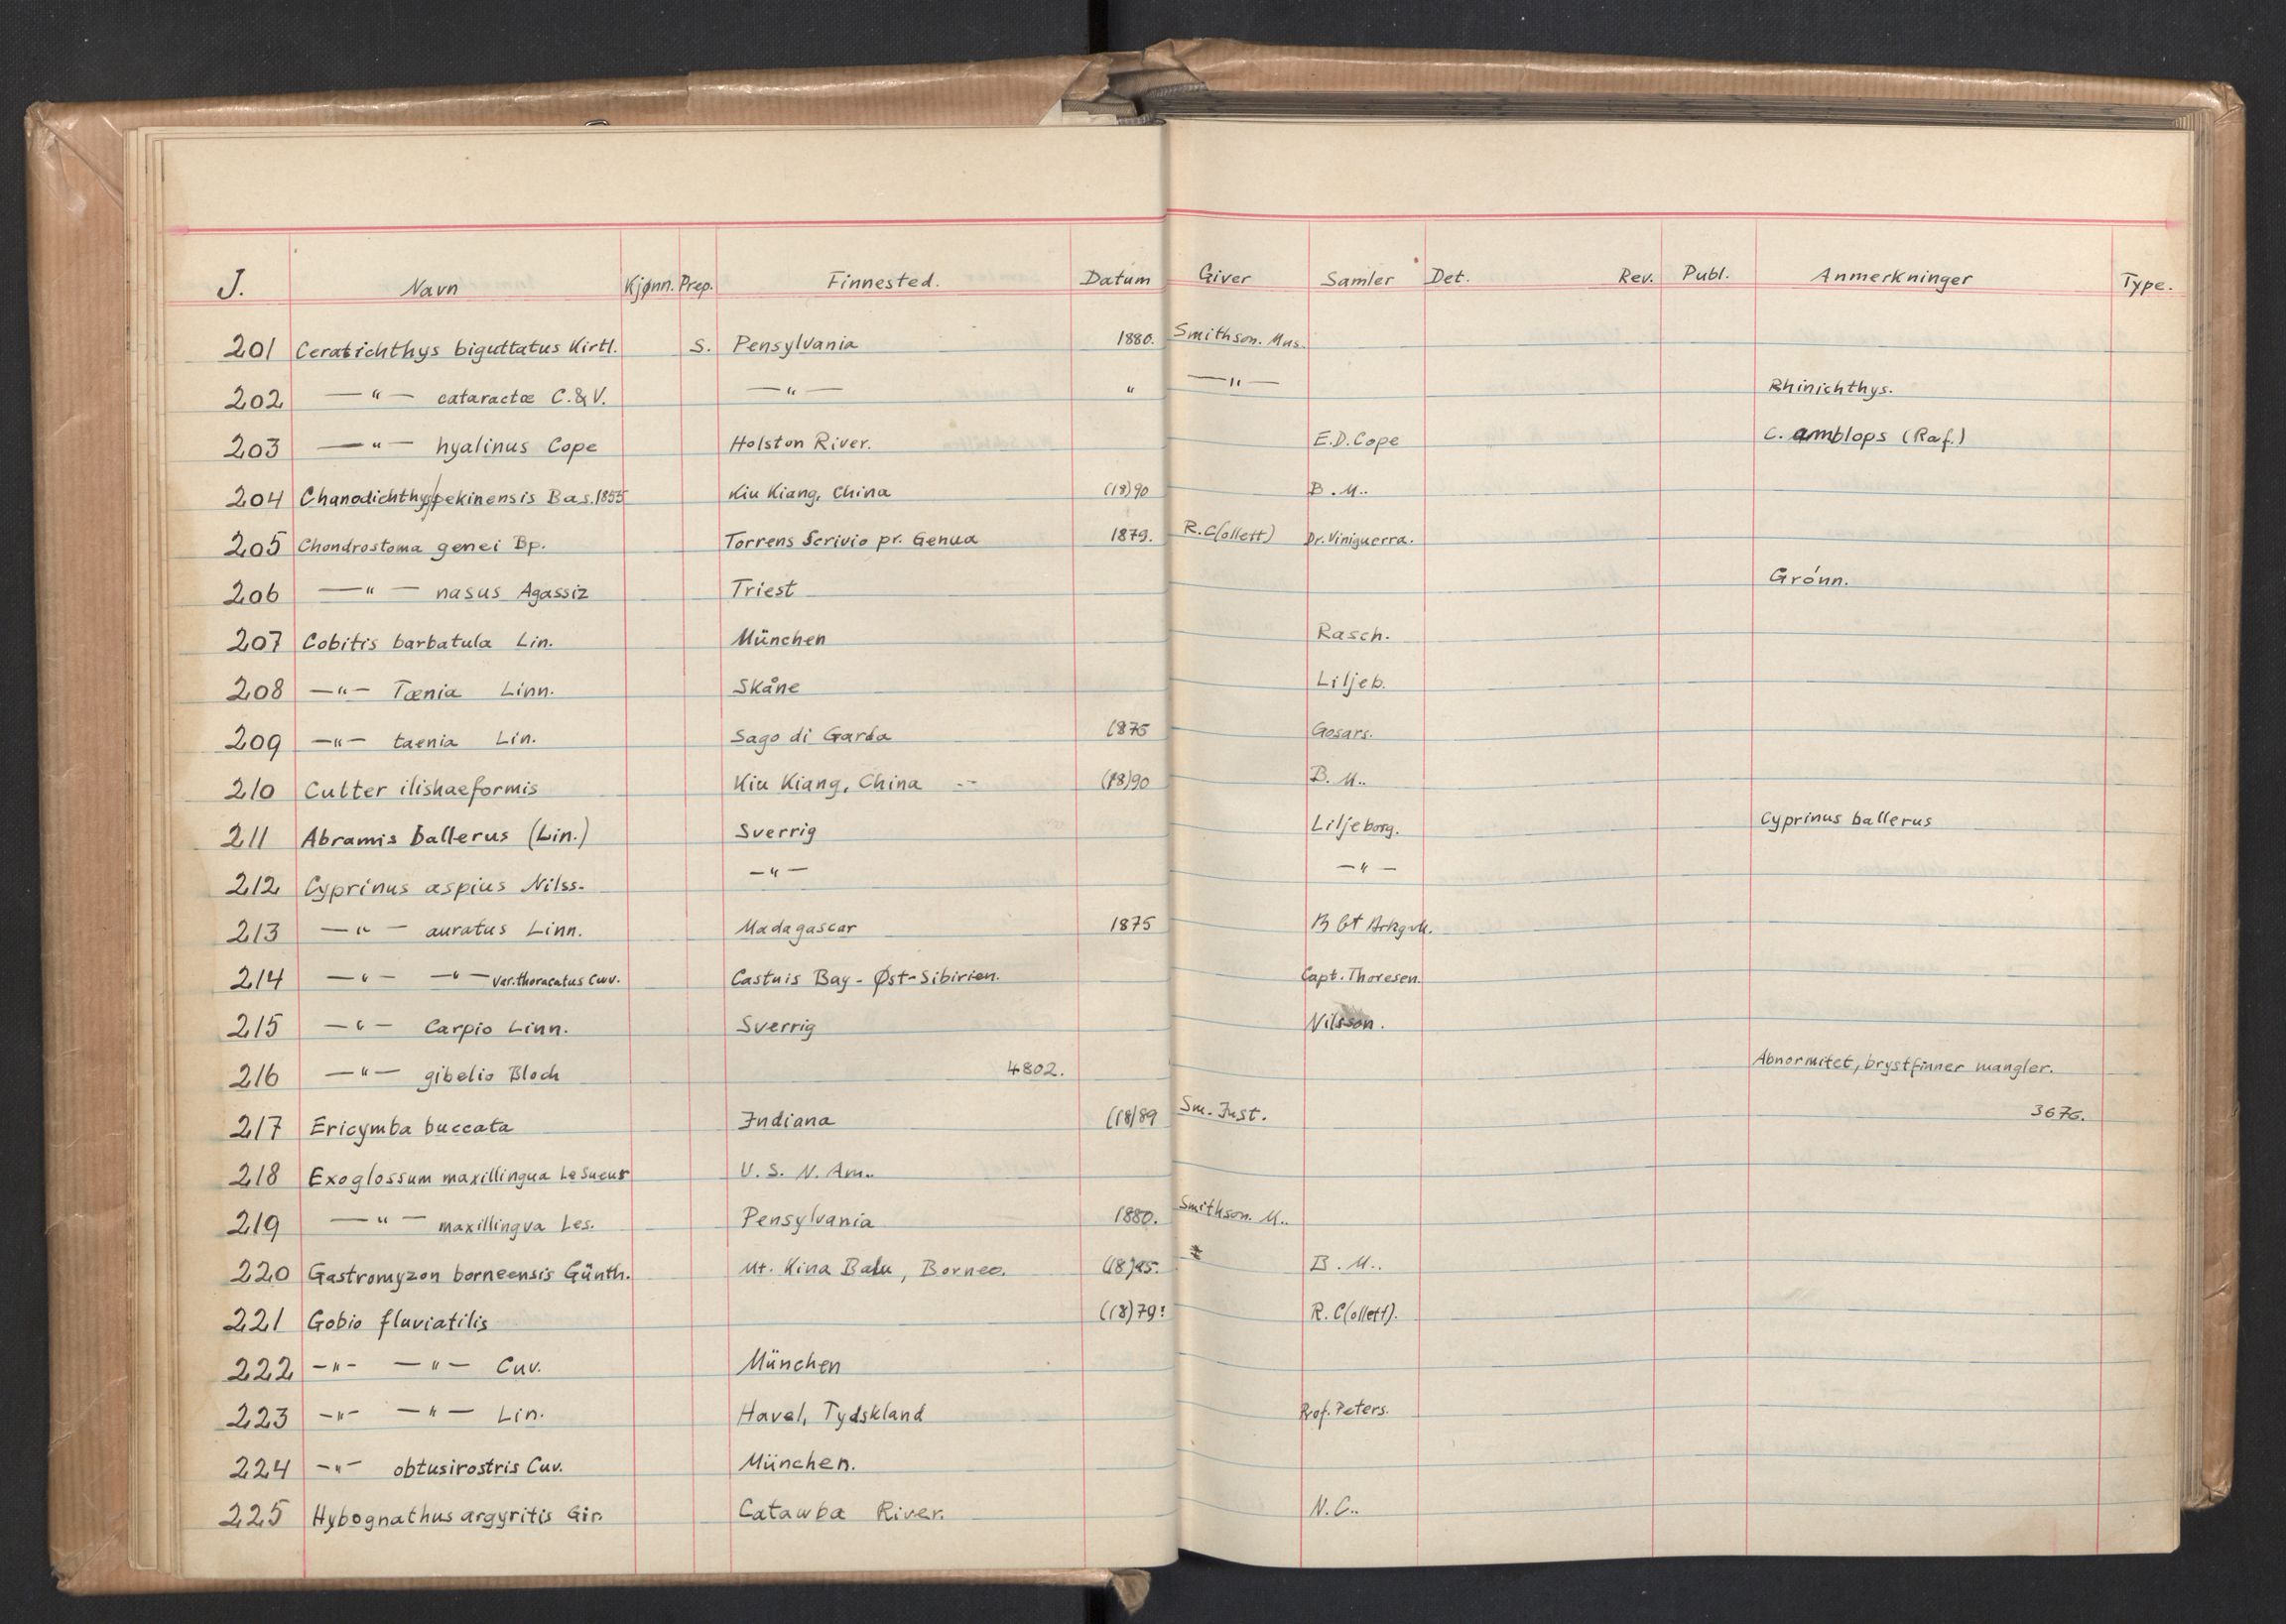 J. Navn Kjønn. Prep. Finnested. Datum Giver Samler Det. Rev. Publ. Anmerkninger Type.
201 Ceratichthys biguttatus Kirtl. S. Pensylvania 1880. Smithson. Mus.
202 —"— cataractæ C. & V. —"— " —"— Rhinichthys.
203 —"— hyalinus Cope Holston River. E.D. Cope C. amblops (Raf.)
204 Chanodichthys pekinensis Bas. 1855 Kiu Kiang, China (18)90 B. M..
205 Chondrostoma genei Bp. Torrens Scrivio pr. Genua 1879. R. C(ollett) Dr. Viniguerra.
206 —"— nasus Agassiz Triest Grónn.
207 Cobitis barbatula Lin. München Rasch.
208 —"— Tænia Linn. Skåne Liljeb.
209 —"— taenia Lin. Sago di Garda 1875 Gosars.
210 Culter ilishaeformis Kiu Kiang, China (18)90 B. M..
211 Abramis ballerus (Lin.) Sverrig Liljeborg. Cyprinus ballerus
212 Cyprinus aspius Nilss. —"— —"—
213 —"— auratus Linn. Madagascar 1875
214 —"— —"— var. thoracatus Cuv. Castuis Bay - Øst-Sibirien. Capt. Thoresen.
215 —"— Carpio Linn. Sverrig Nilsson.
216 —"— gibelio Bloch 4802. Abnormitet, brystfinner mangler.
217 Ericymba buccata Indiana (18)89 Sm. Inst. 3676.
218 Exoglossum maxillingua Le Sueur U. S. N. Am..
219 —"— maxillingva Les. Pensylvania 1880. Smithson. M..
220 Gastromyzon borneensis Günth. Mt. Kina Balu, Borneo. B. M..
221 Gobio fluviatilis (18)79: R. C(ollett).
222 —"— —"— Cuv. München
223 —"— —"— Lin. Havel, Tydskland Prof. Peters.
224 —"— obtusirostris Cuv. München.
225 Hybognathus argyritis Gir. Catawba River. N.C..